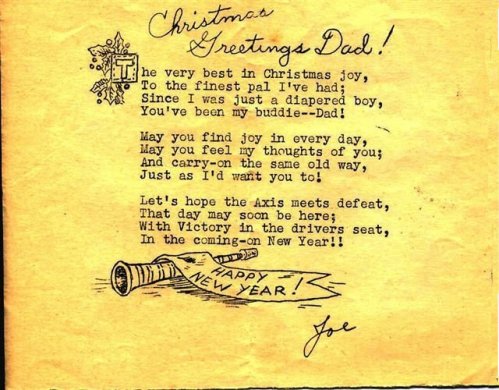 Christmas
Greetings Dad!
The very best in Christmas joy,
To the finest pal I've had;
Since I was just a diapered boy,
You've been my buddie--Dad!
May you find joy in every day,
May you feel my thoughts of you;
And carry-on the same old way,
Just as I'd want you to!
Let's hope the Axis meets defeat,
That day may soon be here;
With Victory in the drivers seat,
In the coming-on New Year!!
HAPPY
NEW YEAR!
Joe